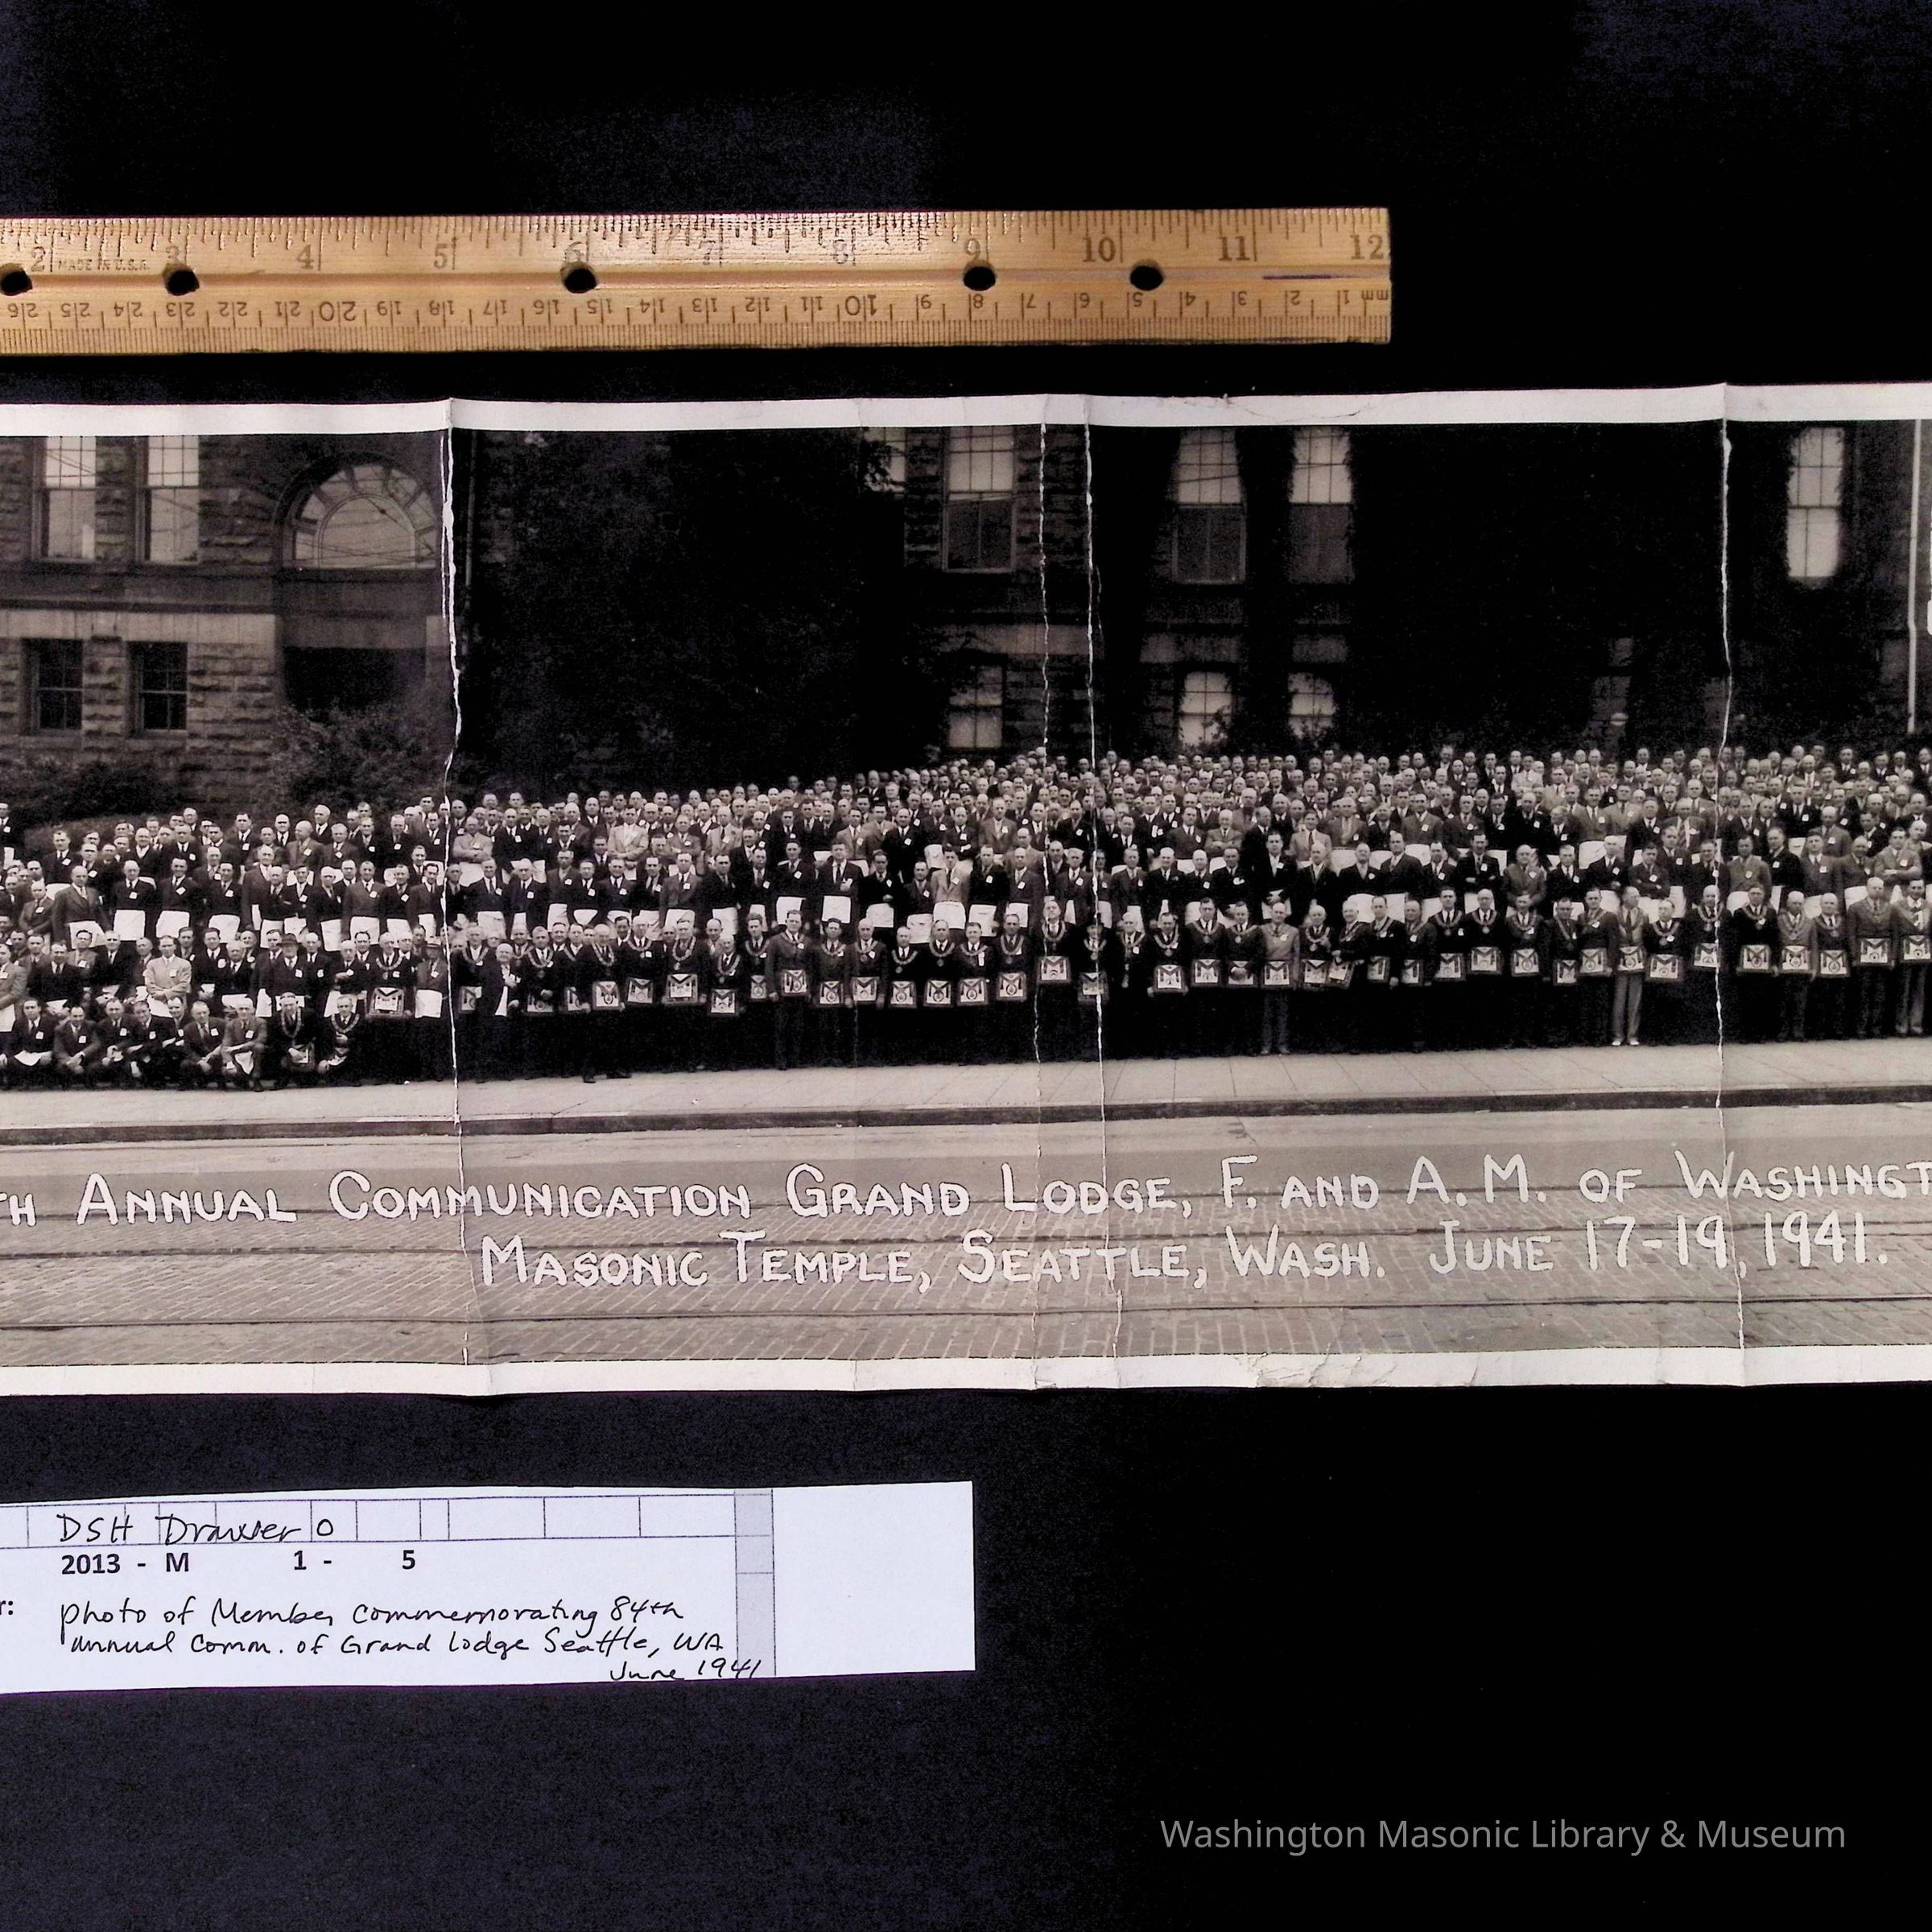 2 3 4 5 6 7 8 9 10 11 12
MADE IN U.S.A.
26 25 24 23 22 21 20 19 18 17 16 15 14 13 12 11 10 9 8 7 6 5 4 3 2 1 mm
TH ANNUAL COMMUNICATION GRAND LODGE, F. AND A. M. OF WASHINGT
MASONIC TEMPLE, SEATTLE, WASH. JUNE 17-19, 1941.
DSH Drawer O
2013 - M 1 - 5
r: photo of Member commemorating 84th
annual comm. of Grand Lodge Seattle, WA
June 1941
Washington Masonic Library & Museum